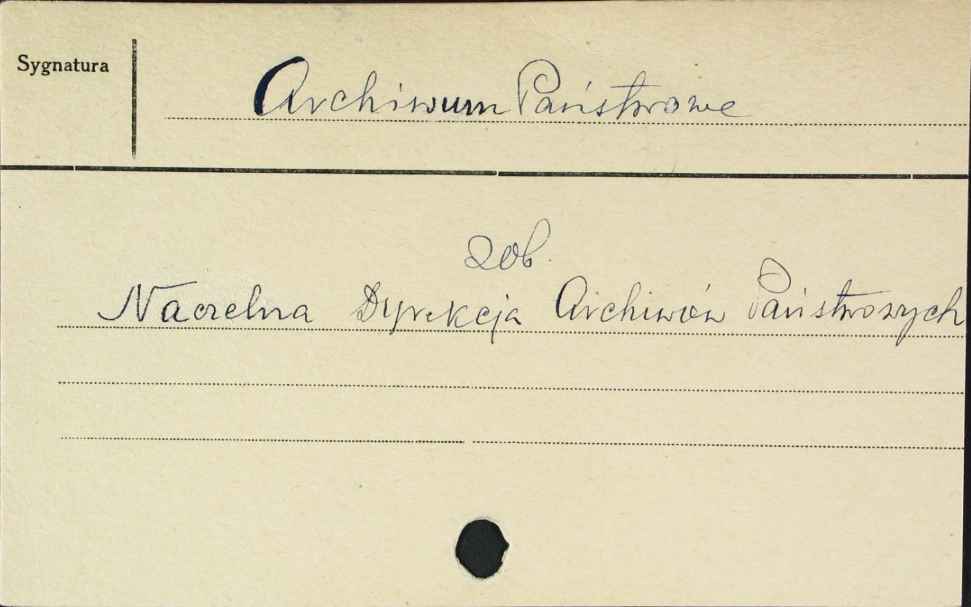 Sygnatura
Archiwum Państwowe
zob.
Naczelna Dyrekcja Archiwów Państwowych